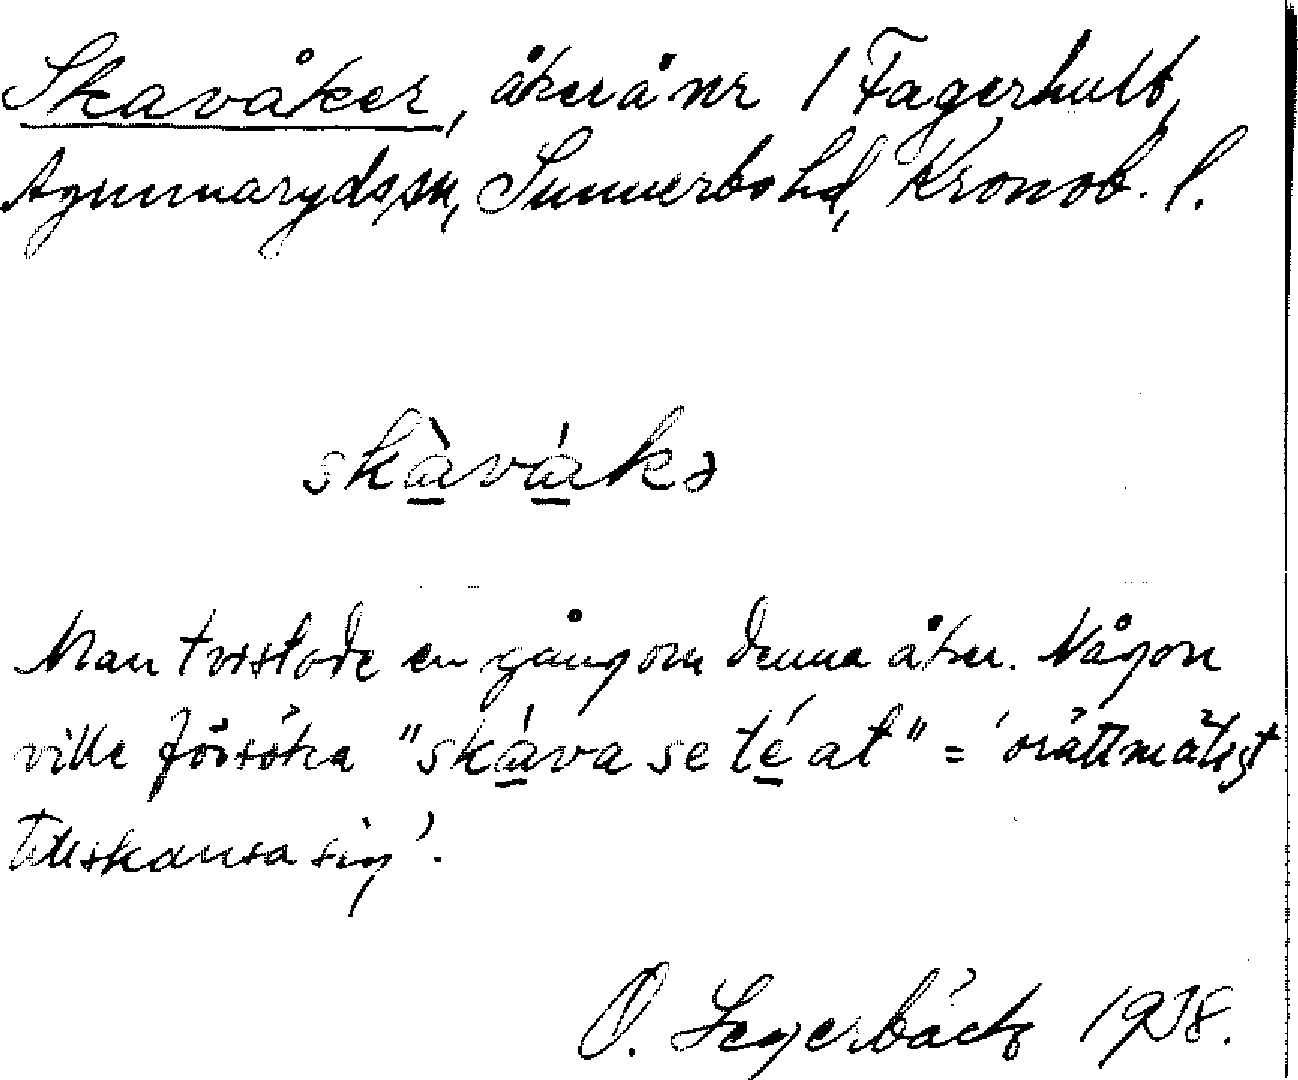 Skavåker, åker å nr 1 Fagerhult,
Agunnaryds sn, Sunnerbo hd, Kronob. l.
skàvákə
Man tvistade en gång om denna åker. Någon
ville försöka "skáva se té at" = 'orättmätigt
tillskansa sig'.
O. Segerbäck 1938.